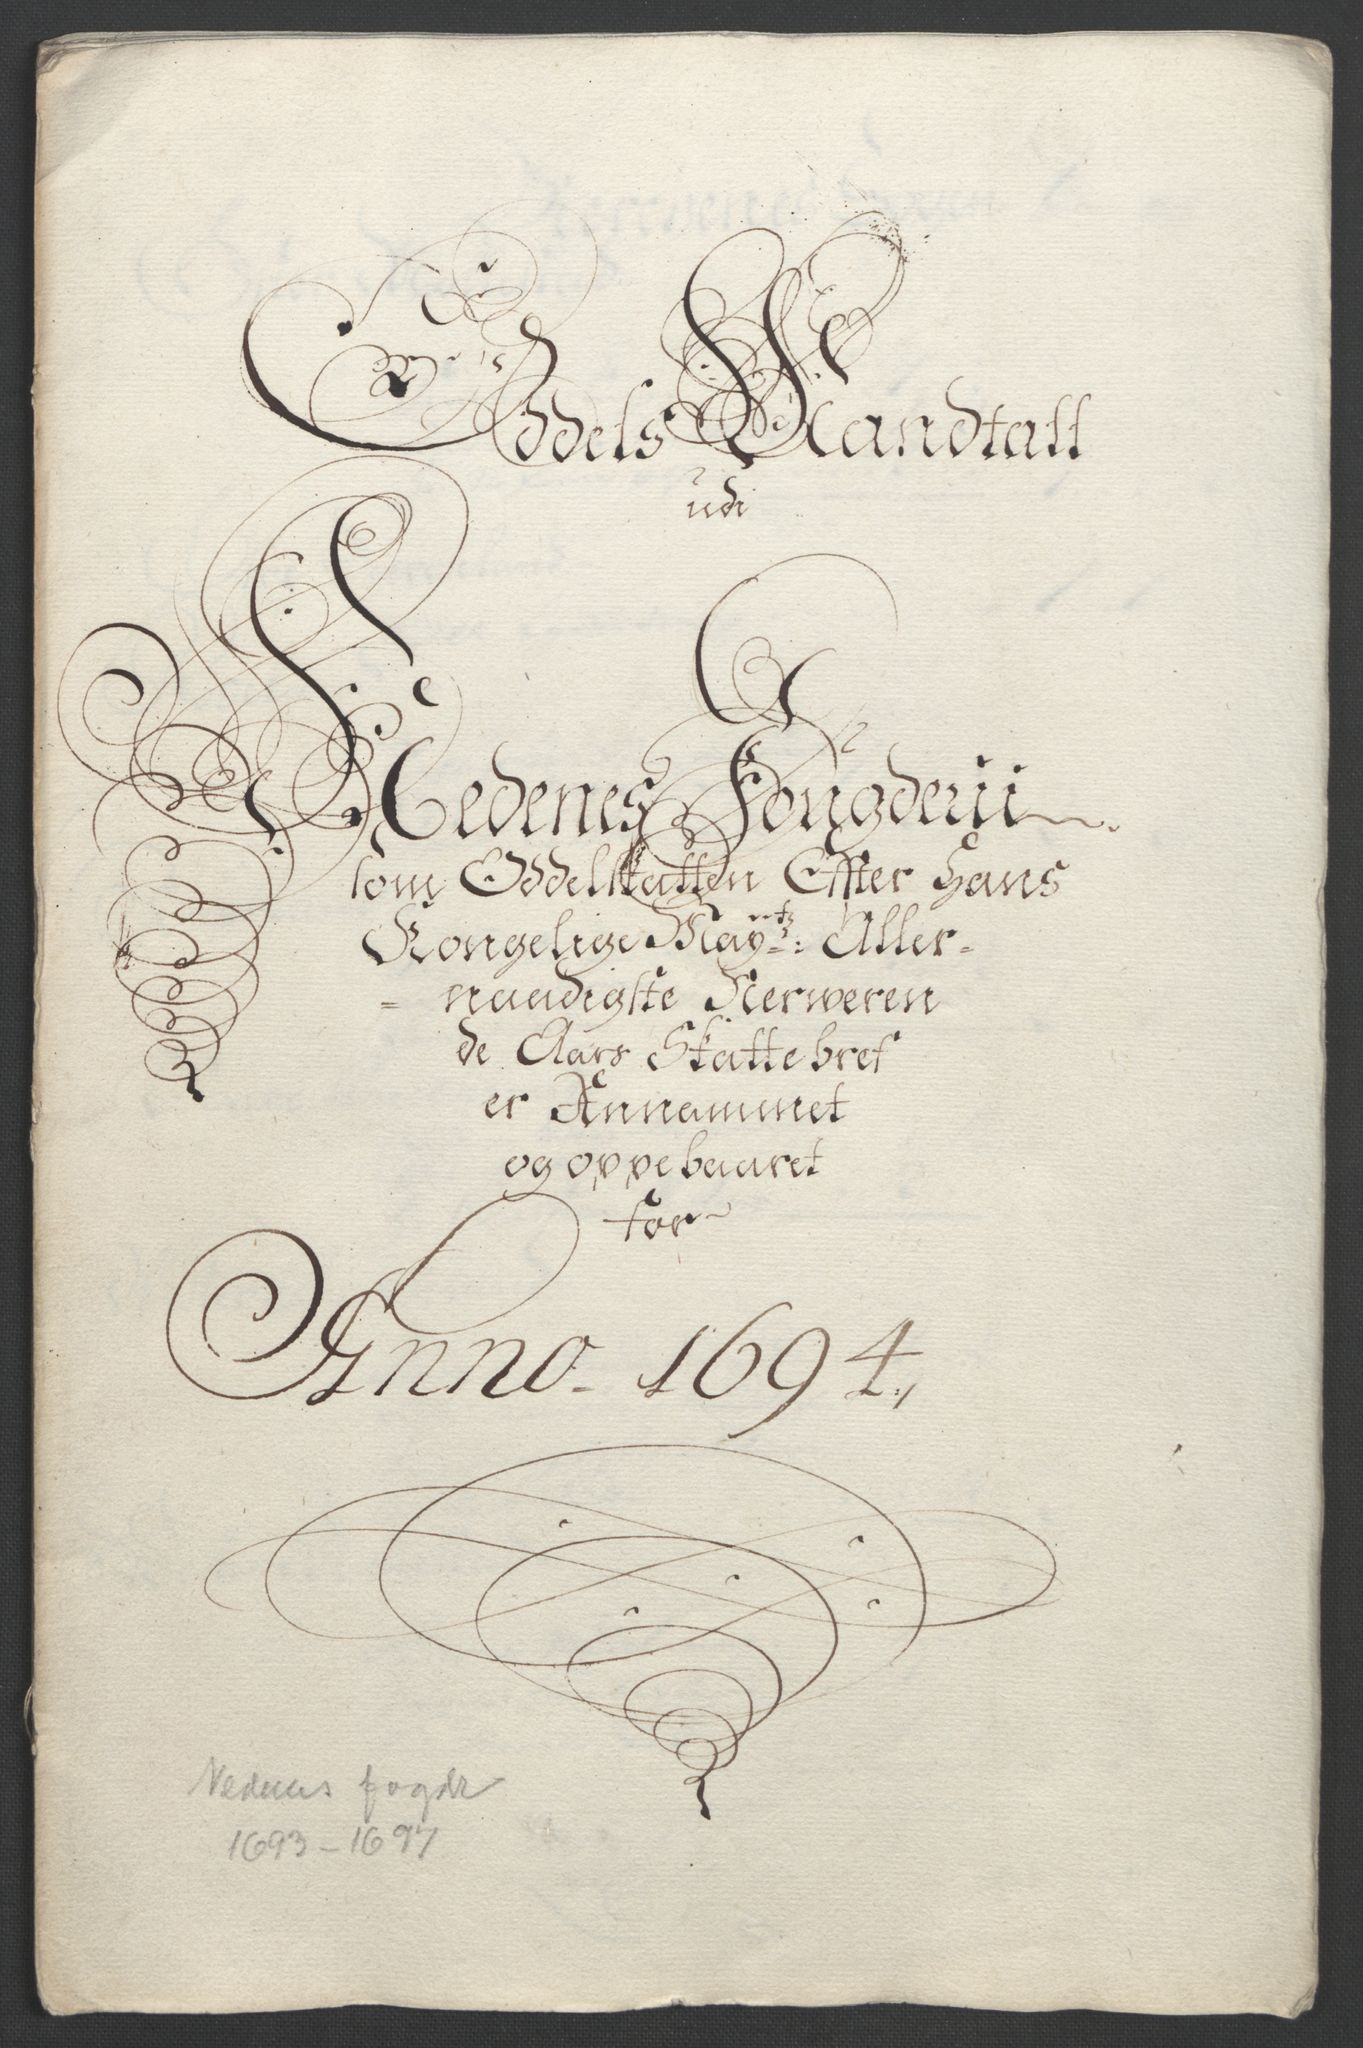 Oddels Mandtall
udi
Nedenes Fougderii
som Oddelskatten Effter Hans
Kongelige Mayts: Aller-
- naadigste Nerweren
de Aars Skattebref
er Annammet
og oppebaaret
for
Anno 1694
Nedenes fogdr
1693-1697